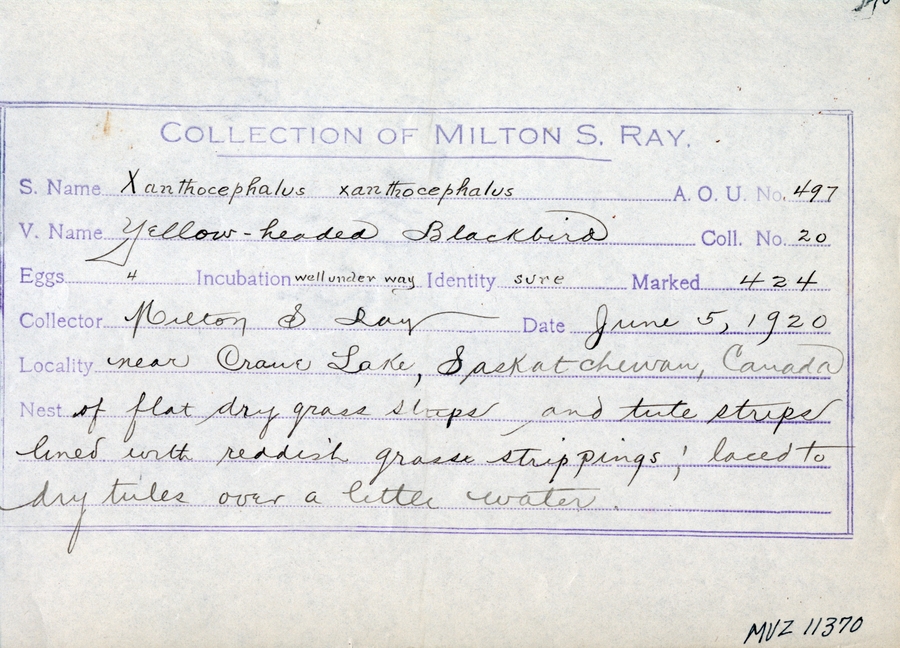 COLLECTION OF MILTON S. RAY.
S. Name Xanthocephalus xanthocephalus A. O. U. No. 497
V. Name Yellow-headed Blackbird Coll. No. 20
Eggs 4 Incubation well under way Identity sure Marked 424
Collector Milton S Ray Date June 5, 1920
Locality near Crane Lake, Saskatchewan, Canada
Nest of flat dry grass strips and tule strips
lined with reddish grass strippings; laced to
dry tules over a little water.
MVZ 11370